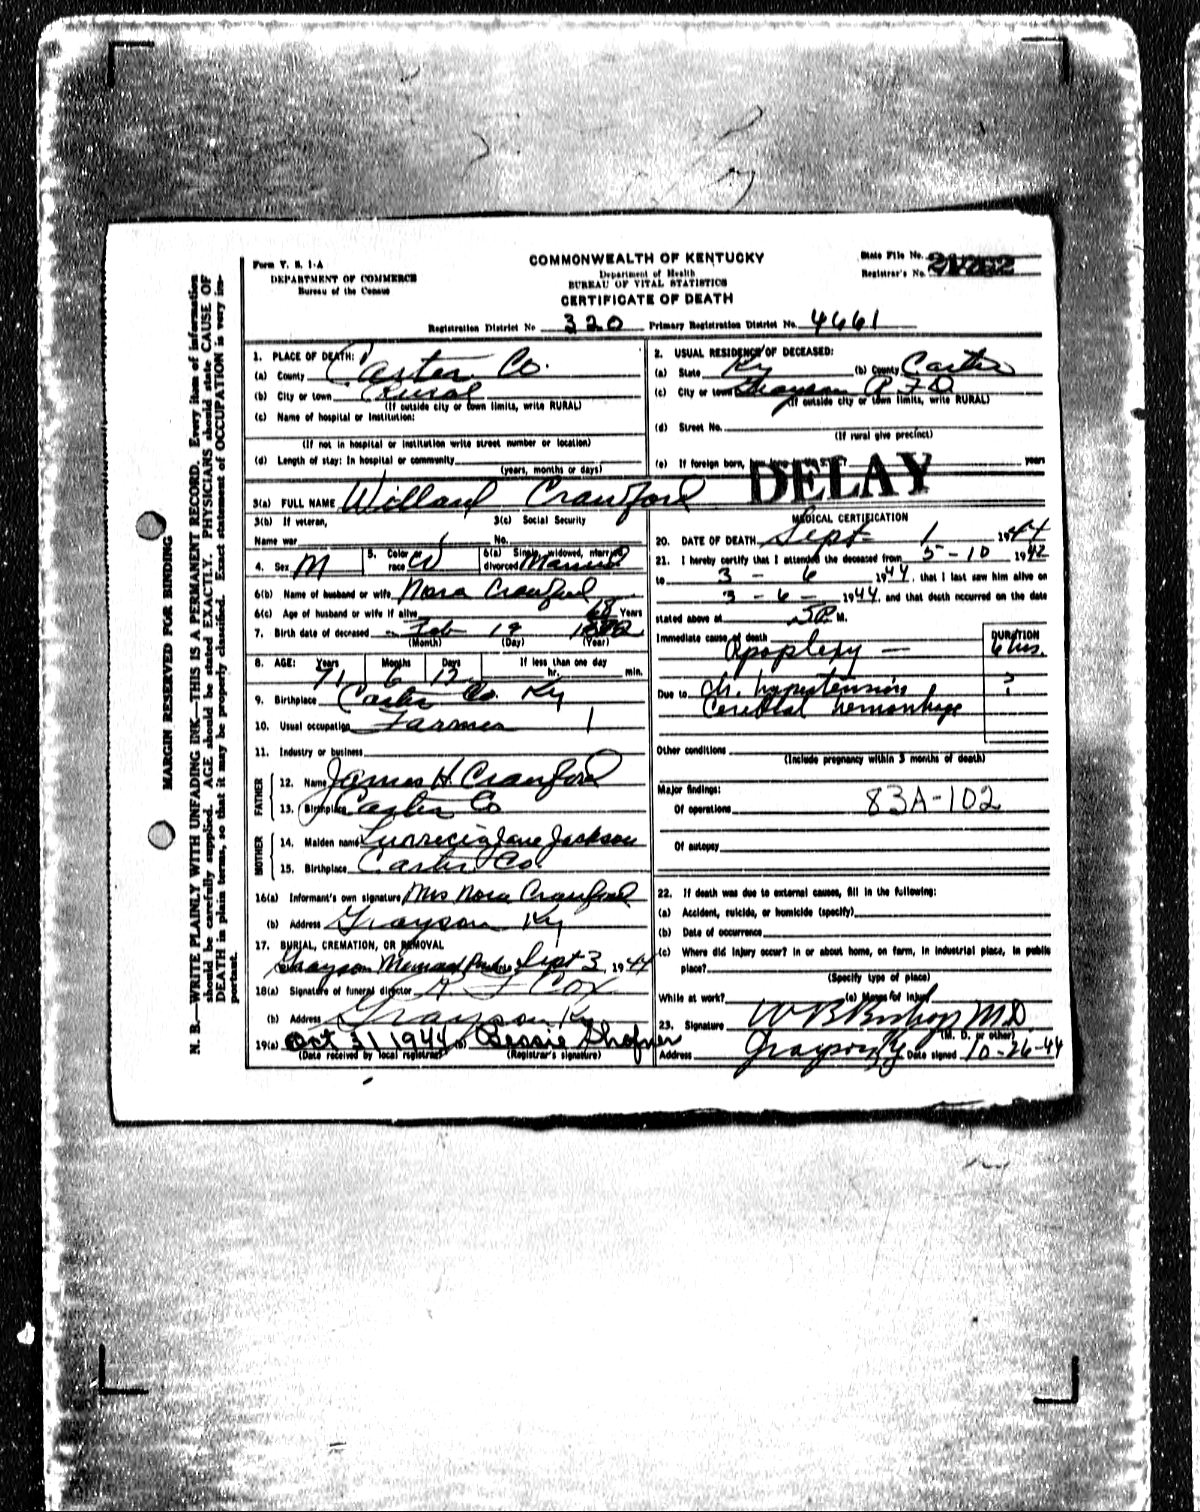 Form V. S. 1-A
DEPARTMENT OF COMMERCE
Bureau of the Census
COMMONWEALTH OF KENTUCKY
Department of Health
BUREAU OF VITAL STATISTICS
CERTIFICATE OF DEATH
State File No.
Registrar's No.
Registration District No 320 Primary Registration District No. 4661
N. B.—WRITE PLAINLY WITH UNFADING INK—THIS IS A PERMANENT RECORD. Every item of information
should be carefully supplied. AGE should be stated EXACTLY. PHYSICIANS should state CAUSE OF
DEATH in plain terms, so that it may be properly classified. Exact statement of OCCUPATION is very im-
portant.
MARGIN RESERVED FOR BINDING
1. PLACE OF DEATH:
(a) County Carter Co.
(b) City or town Rural
(If outside city or town limits, write RURAL)
(c) Name of hospital or institution:
(If not in hospital or institution write street number or location)
(d) Length of stay: In hospital or community
(years, months or days)
2. USUAL RESIDENCE OF DECEASED:
(a) State Ky (b) County Carter
(c) City or town Grayson RFD
(If outside city or town limits, write RURAL)
(d) Street No.
(If rural give precinct)
(e) If foreign born, years
DELAY
3(a) FULL NAME Willard Crawford
3(b) If veteran, 3(c) Social Security
Name war No.
4. Sex M 5. Color or race W 6(a) Single, widowed, married, divorced Married
6(b) Name of husband or wife Nora Crawford
6(c) Age of husband or wife if alive 68 Years
7. Birth date of deceased Feb 19
(Month) (Day) (Year)
8. AGE: Years Months Days If less than one day
71 6 12 hr. min.
9. Birthplace Carter Co. Ky
10. Usual occupation Farmer 1
11. Industry or business
FATHER
12. Name James H. Crawford
13. Birthplace Carter Co
MOTHER
14. Maiden name Lurrecia Jane Jackson
15. Birthplace Carter Co.
16(a) Informant's own signature Mrs Nora Crawford
(b) Address Grayson Ky
17. BURIAL, CREMATION, OR REMOVAL
Grayson Sept 3, 1944
18(a) Signature of funeral director Cox
(b) Address Grayson Ky
19(a) Oct 31 1944 (b) Bessie Shafner
(Date received by local registrar) (Registrar's signature)
MEDICAL CERTIFICATION
20. DATE OF DEATH Sept 1 1944
21. I hereby certify that I attended the deceased from 5-10 1942
to 3 - 6 1944, that I last saw him alive on
3 - 6 - 1944, and that death occurred on the date
stated above at 5P. M.
Immediate cause of death DURATION
Apoplexy — 6 hrs.
Due to Ch. hypertension ?
Cerebral hemorrhage
Other conditions
(Include pregnancy within 3 months of death)
Major findings:
Of operations 83A-102
Of autopsy
22. If death was due to external causes, fill in the following:
(a) Accident, suicide, or homicide (specify)
(b) Date of occurrence
(c) Where did injury occur? In or about home, on farm, in industrial place, in public
place?
(Specify type of place)
While at work? (e) Means of injury
23. Signature W B Bishop M.D.
(M. D. or other)
Address Grayson Ky Date signed 10-26-44